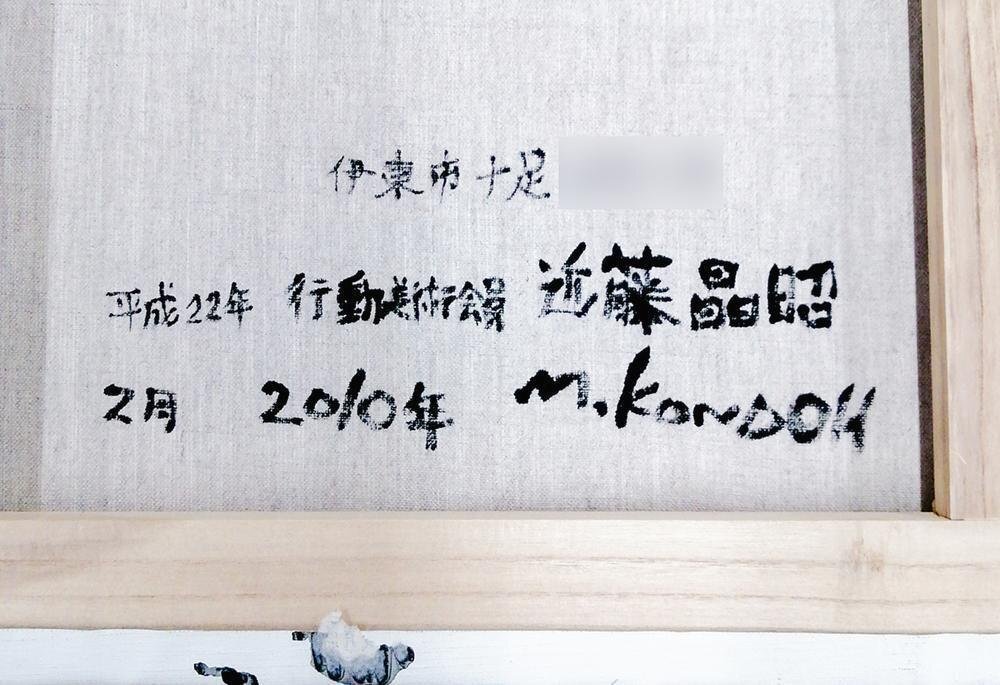 伊東市十足
平成22年 行動美術会員 近藤晶昭
2月 2010年 M.KONDOH